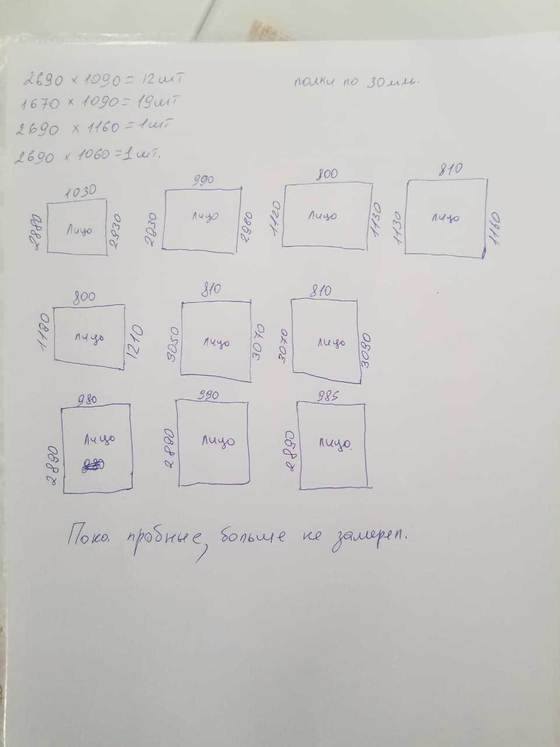 2690 × 1090 = 12 шт
полки по 30 мм.
1670 × 1090 = 19 шт
2690 × 1160 = 1 шт
2690 × 1060 = 1 шт.
1030 990 800 810
2880 Лицо 2930 2930 Лицо 2960 1120 Лицо 1130 1130 Лицо 1160
800 810 810
1180 Лицо 1210 3050 Лицо 3070 3070 Лицо 3090
980 990 985
2890 Лицо 2890 Лицо 2890 Лицо
Пока пробные, больше не замерял.